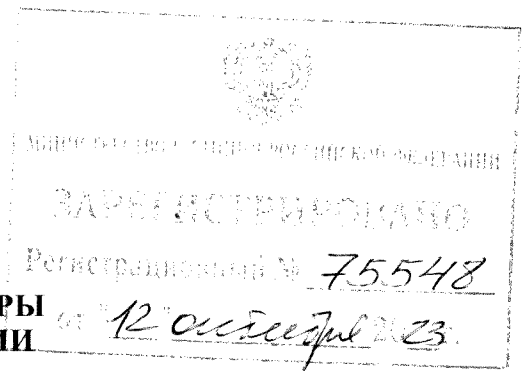 МИНИСТЕРСТВО ЮСТИЦИИ РОССИЙСКОЙ ФЕДЕРАЦИИ
ЗАРЕГИСТРИРОВАНО
Регистрационный № 75548
от "12" октября 2023 г.
РЫ
ИИ